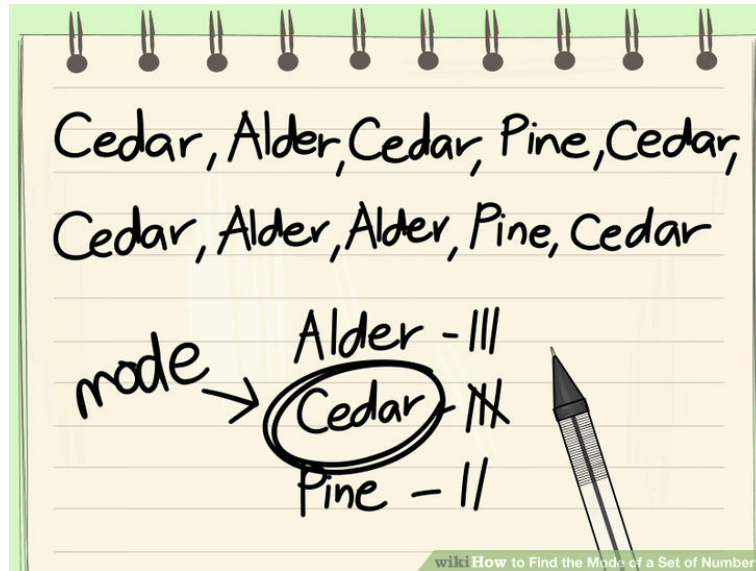 Cedar, Alder, Cedar, Pine, Cedar,
Cedar, Alder, Alder, Pine, Cedar
Alder - III
mode → Cedar - 𝍸
Pine - II
wikiHow to Find the Mode of a Set of Number